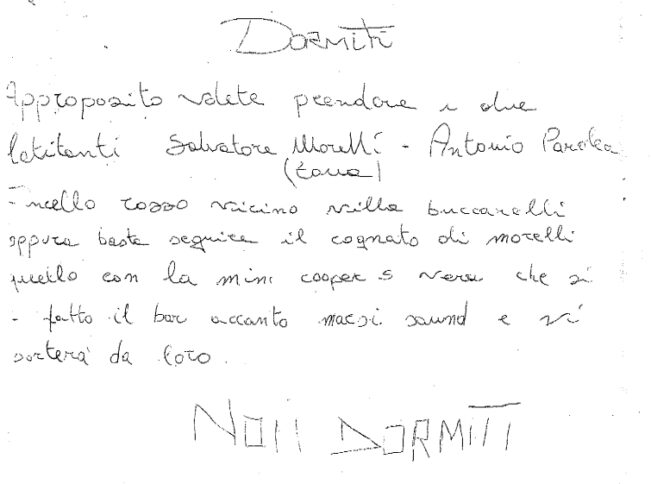 DORMITI
Approposito volete prendere i due
latitanti Salvatore Morelli - Antonio Parolea
(tana)
- ncello rosso vicino villa buccarelli
oppure basta seguire il cognato di morelli
quello con la mini cooper s nera che si
- fatto il bar accanto macsi saund e vi
porterà da loro.
NOII DORMITI